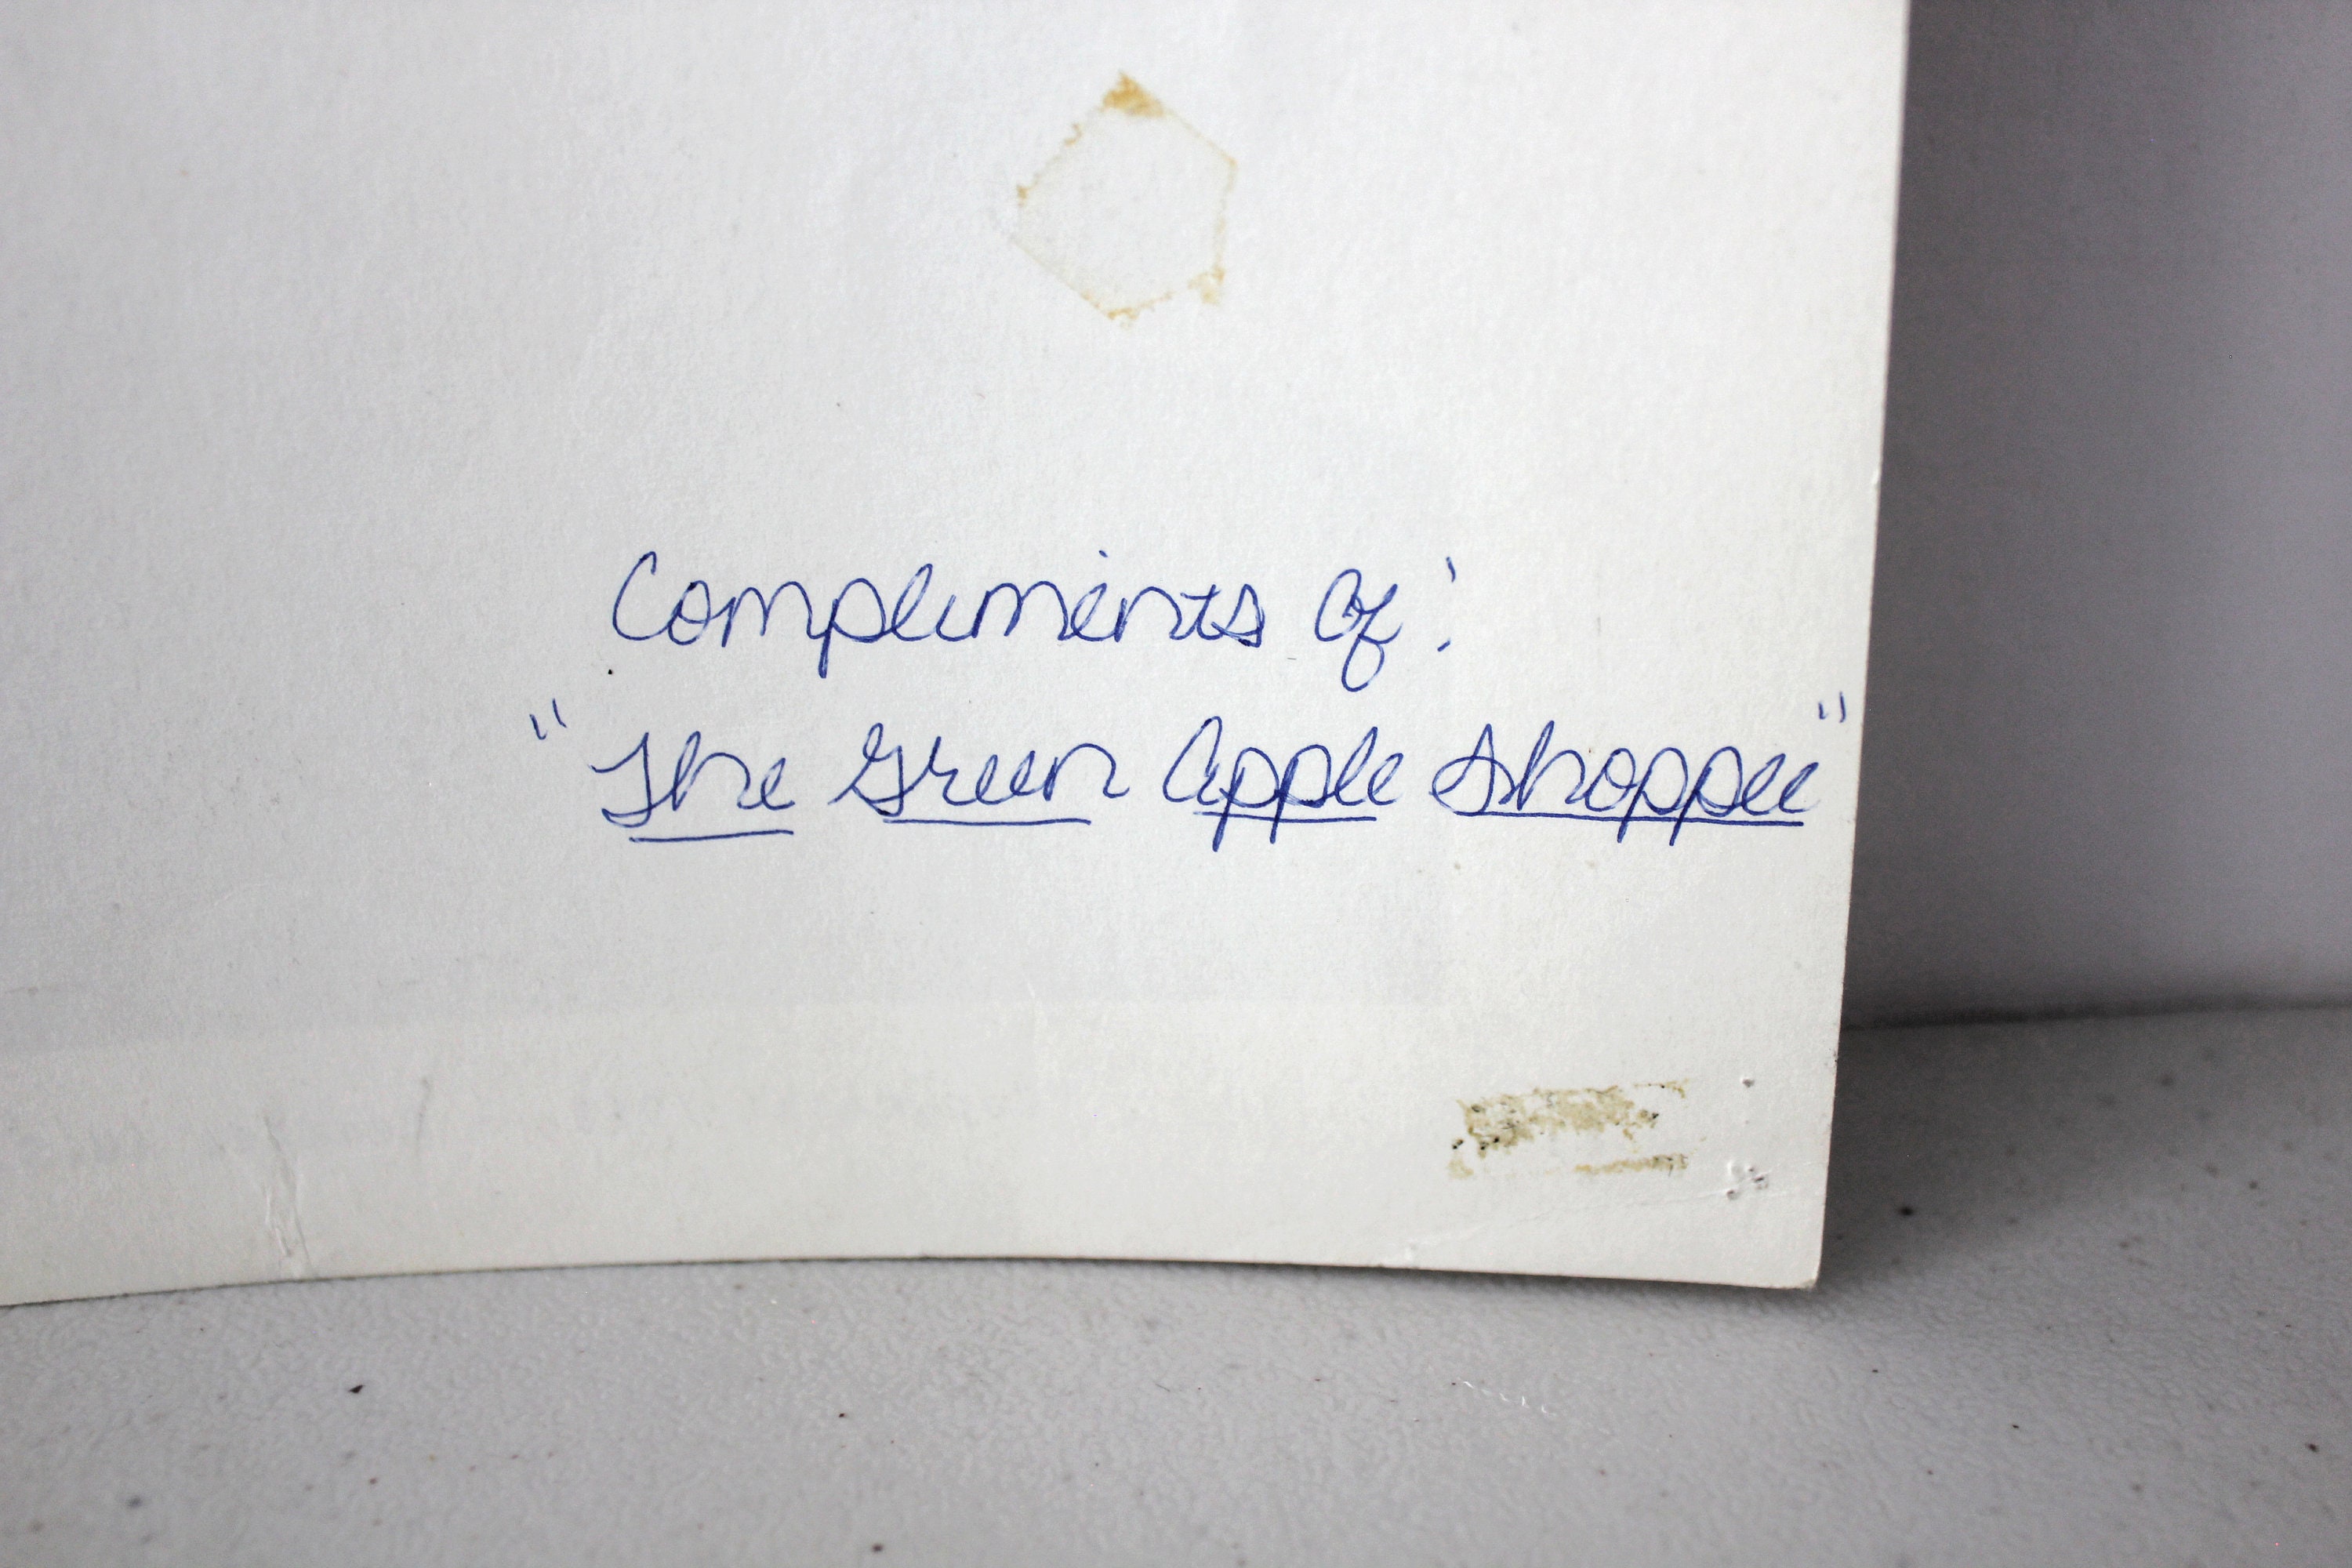 Compliments Of:
"The Green Apple Shoppee"